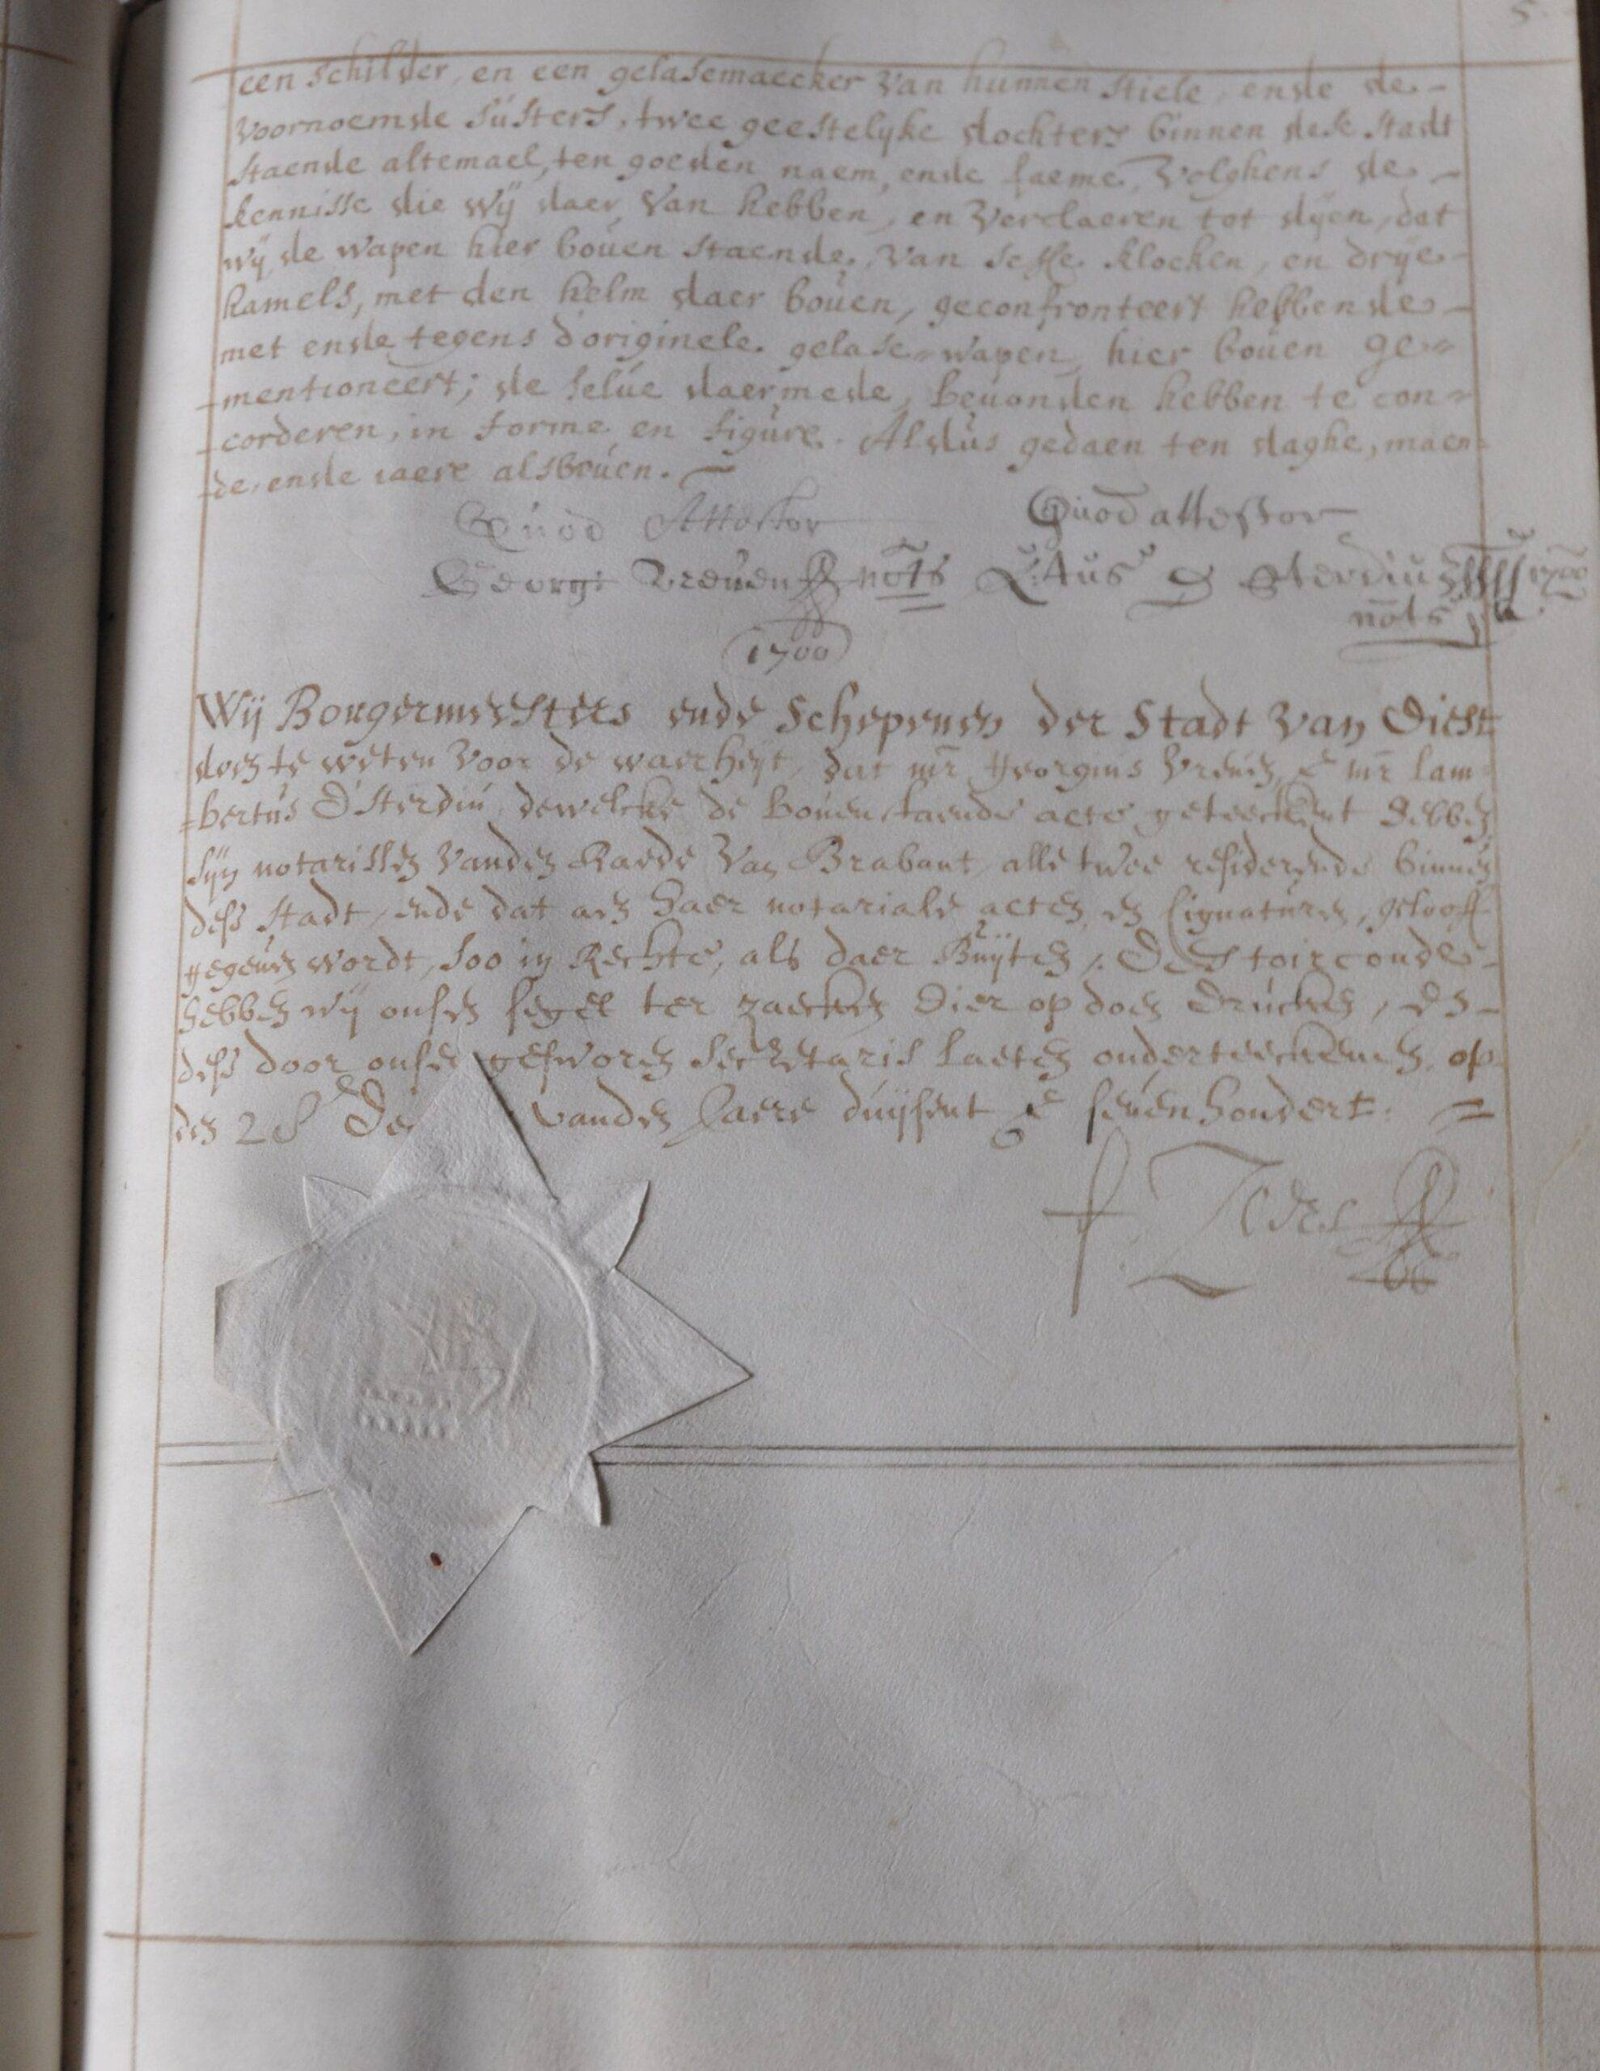 5.
een schilder, en een gelasemaecker van hunnen stiele, ende de
voornoemde susters, twee geestelyke dochters binnen dese stadt
staende altemael, ten goeden naem, ende faeme, volghens de
kennisse die wÿ daer van hebben, en verclaeren tot dÿen, dat
wÿ de wapen hier bouen staende, van sesse klocken, en drÿe
kamels, met den helm daer bouen, geconfronteert hebbende
met ende tegens d'originele gelase-wapen, hier bouen ge=
mentioneert; de selue daermede, beuonden hebben te con=
corderen, in forme en figure. Aldus gedaen ten daghe, maen=
de, ende iaere alsbouen.
Quod Attestor Quod attestor
Georg: Vreuen nots L:tus D Sterdiu 1700
nots
1700
Wij Borgermeesters ende Schepenen der Stadt van Diest
doen te weten voor de waerheyt, dat mr Georgius Vreuen, e mr lam=
=bertus D'Sterdiu dewelcke de bouenstaende acte geteeckent hebben
sijn notarissen vanden Raede van Brabant, alle twee residerende binnen
dese stadt, ende dat aen haer notariale acten, en signaturen, gelooff
gegeuen wordt, soo in Rechte, als daer Buÿten, Des t'oirconde
hebben wij onsen segel ter zaecken hier op doen drucken, en
dese door onsen gesworen secretaris laeten onderteeckenen, op
den 28 De vanden Jaere duijsent e seuen hondert.